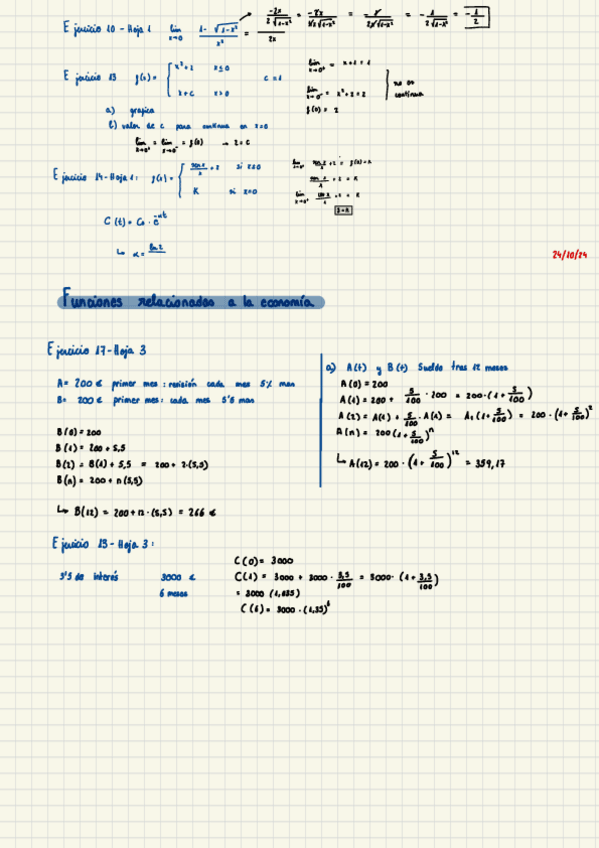 Ejercicio 10 - Hoja 1   lim x→0 (1 - √(1-x²))/x² = /2x   -2x/(2√(1-x²)) = -2x/(2x√(1-x²)) = = -1/(2√(1-x²)) = -1/2
Ejercicio 13   f(x) = { x²+2   x≤0
x+c   x>0   c=1
lim x→0⁺ = x+1 = 1
lim x→0⁻ = x²+2 = 2
f(0) = 2
no es continua
a) grafica
b) valor de c para continua en x=0
lim x→0⁺ = lim x→0⁻ = f(0) → 2 = c
Ejercicio 14 - Hoja 1: f(x) = { +2   si x≠0
K   si x=0
+2 = K
lim x→0⁺ +2 = K
C(t) = C₀ ·
↳ α = ln 2
24/10/24
Funciones relacionadas a la economía
Ejercicio 17 - Hoja 3
A = 200 € primer mes : revisión cada mes 5% mas
B = 200 € primer mes : cada mes 5'5 mas
B(0) = 200
B(1) = 200 + 5,5
B(2) = B(1) + 5,5 = 200 + 2·(5,5)
B(n) = 200 + n(5,5)
↳ B(12) = 200 + 12·(5,5) = 266 €
a) A(t) y B(t) Sueldo tras 12 meses
A(0) = 200
A(1) = 200 + 5/100 · 200 = 200·(1 + 5/100)
A(2) = A(1) + 5/100 · A(1) = A₁(1 + 5/100) = 200·(1 + 5/100)²
A(n) = 200(1 + 5/100)ⁿ
↳ A(12) = 200·(1 + 5/100)¹² = 359,17
Ejercicio 13 - Hoja 3:
3'5 de interés   3000 €
6 meses
C(0) = 3000
C(1) = 3000 + 3000 · 3,5/100 = 3000·(1 + 3,5/100)
= 3000 (1,035)
C(6) = 3000·(1,35)⁶